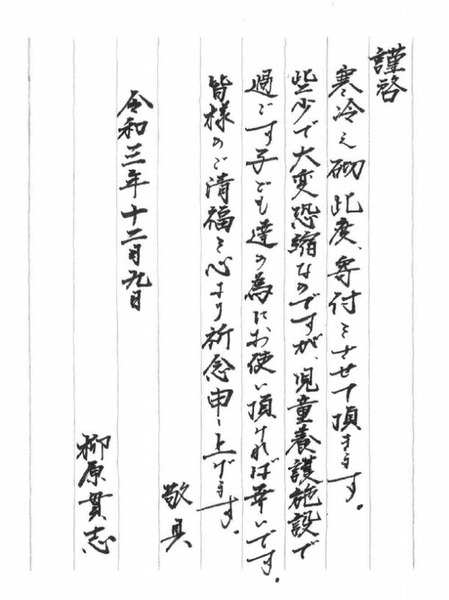 謹啓
寒冷之砌此度、寄付をさせて頂きます。
些少で大変恐縮なのですが、児童養護施設で
過ごす子ども達の為にお使い頂ければ幸いです。
皆様のご清福を心より祈念申し上げます。
敬具
令和三年十二月九日
柳原貫志